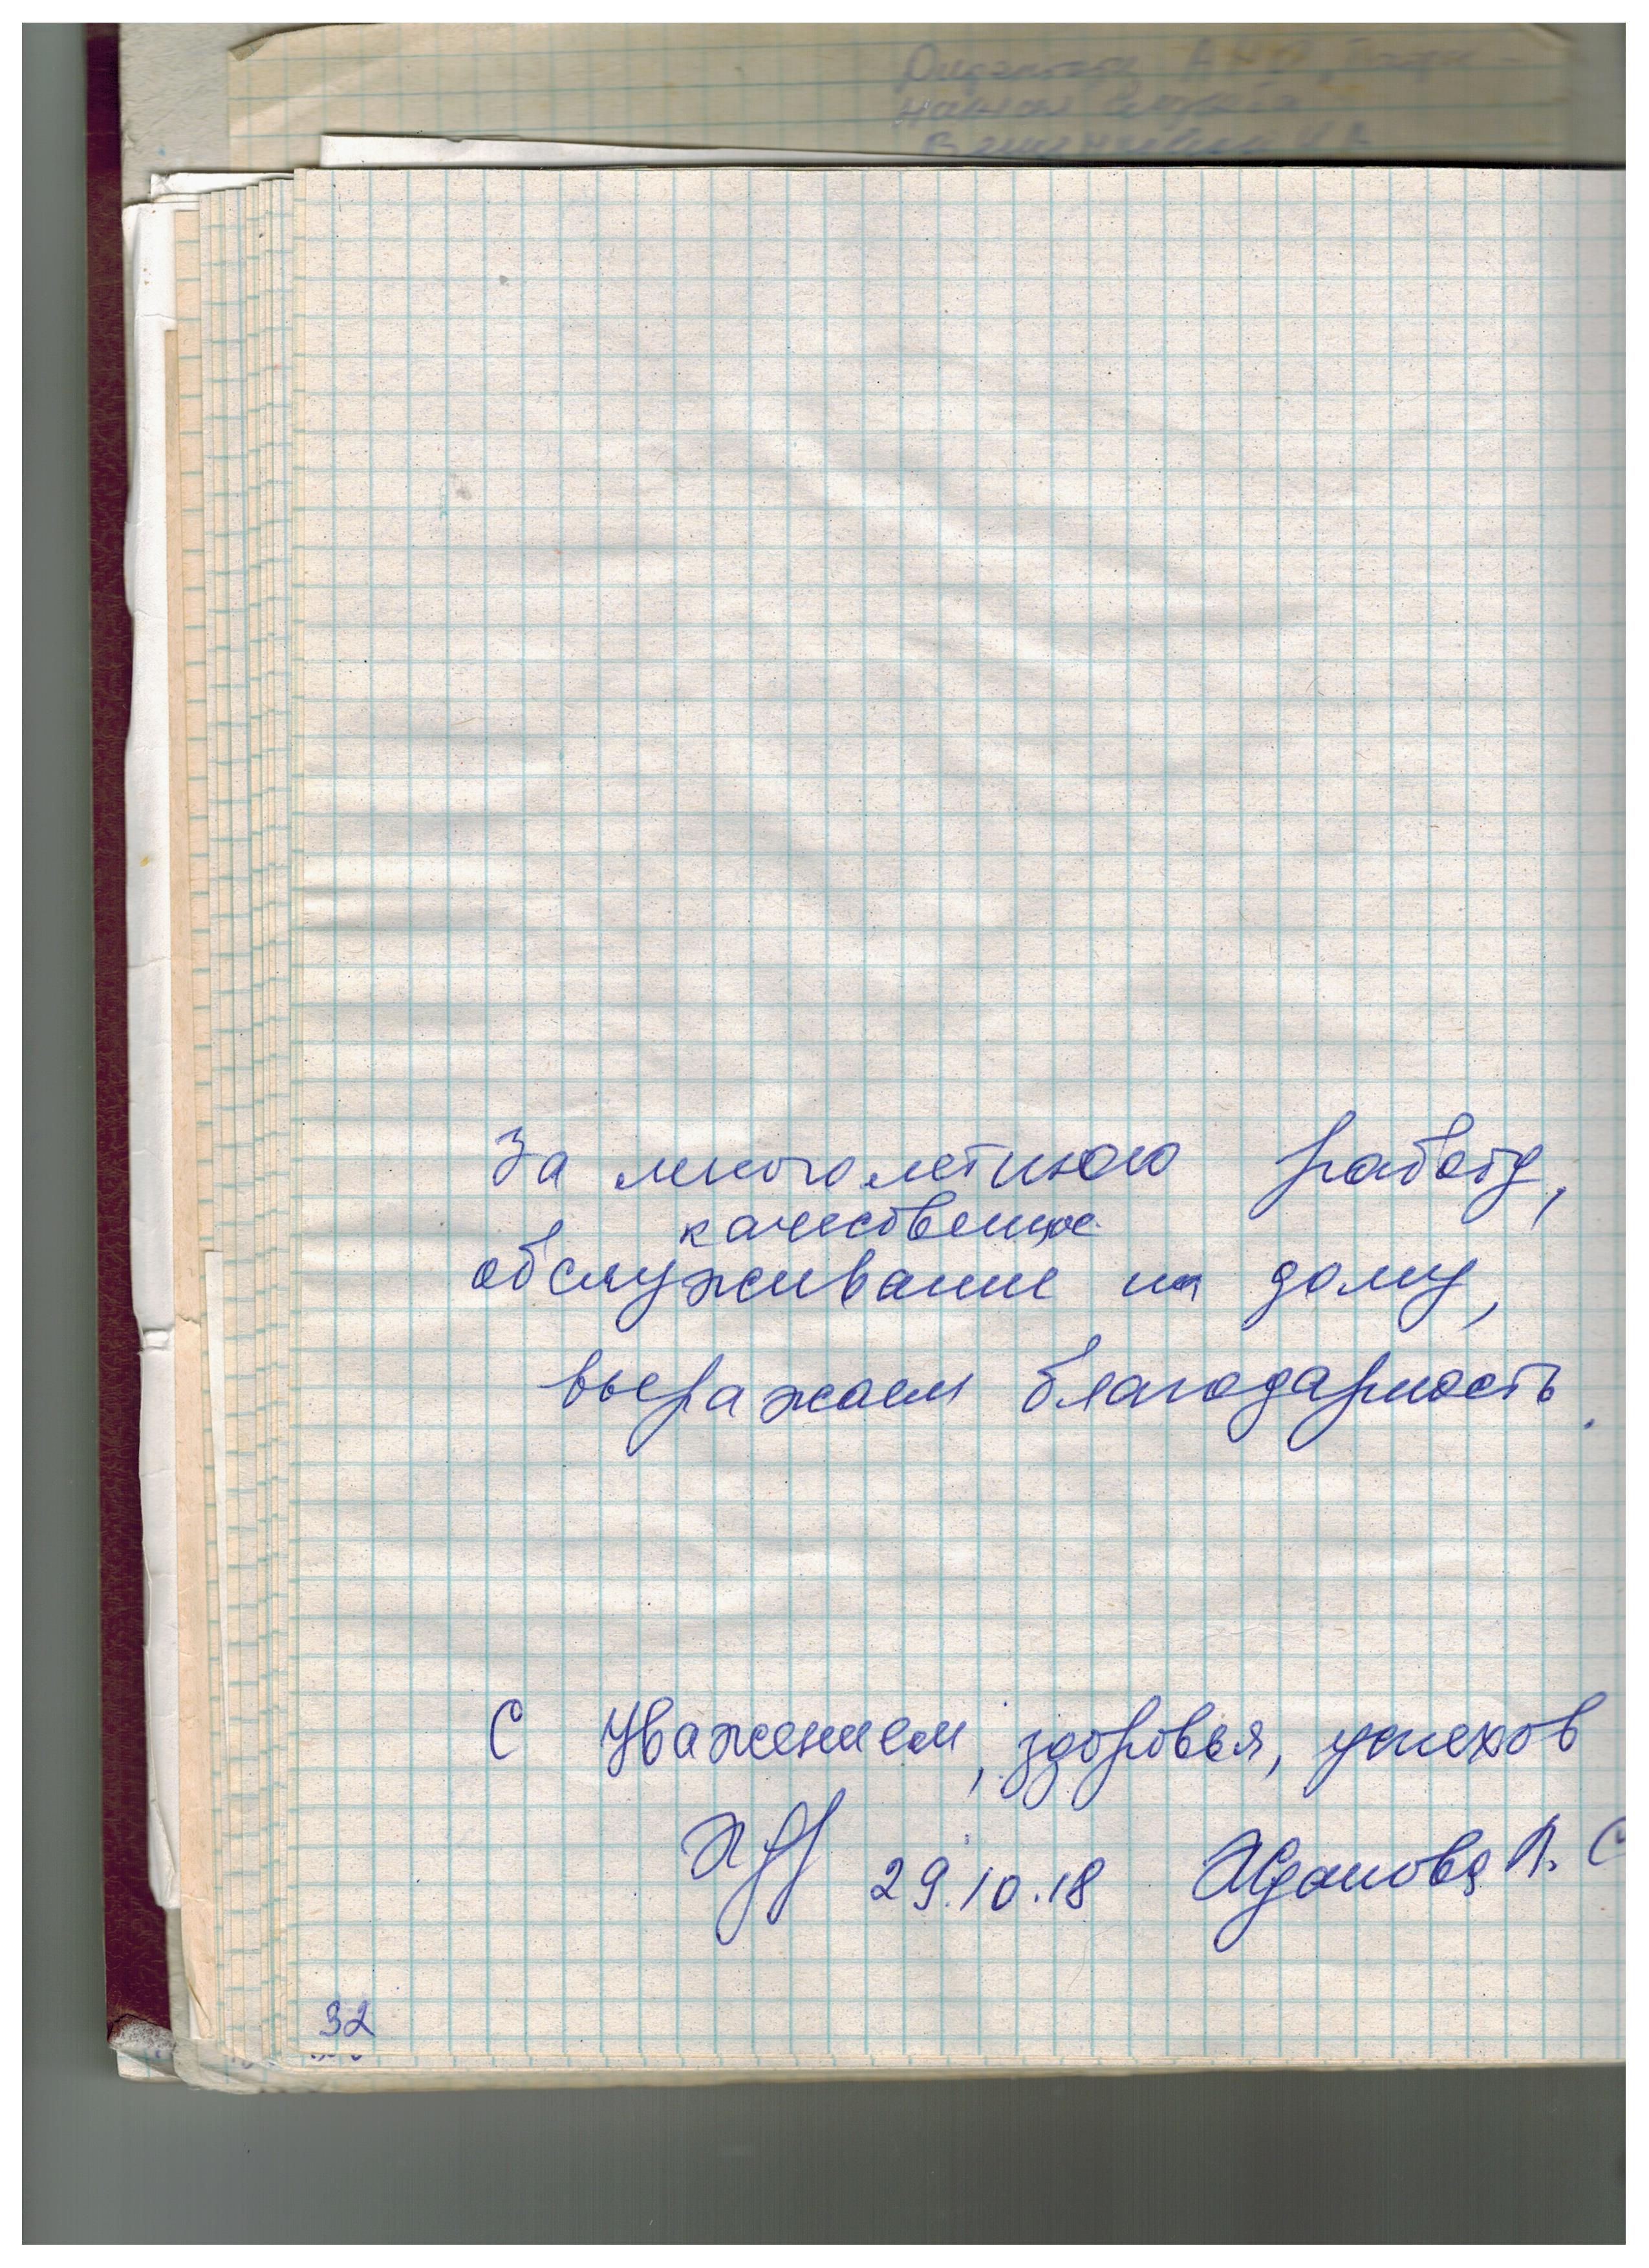 Директору АНО
За многолетнюю работу,
качественное
обслуживание на дому,
выражаем благодарность.
С Уважением, здоровья, успехов
29.10.18 Жданова Л. С
32